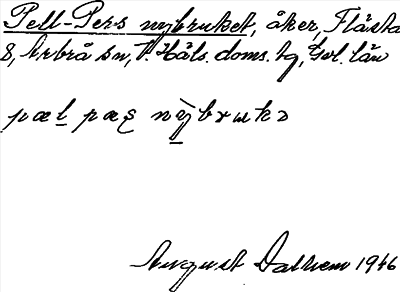 Pell-Pers nybruket, åker, Flästa
8, Arbrå sn, V. Häls. doms. tg, Gvl. län
pæl pæș nỳbrukə
August Dalhem 1946